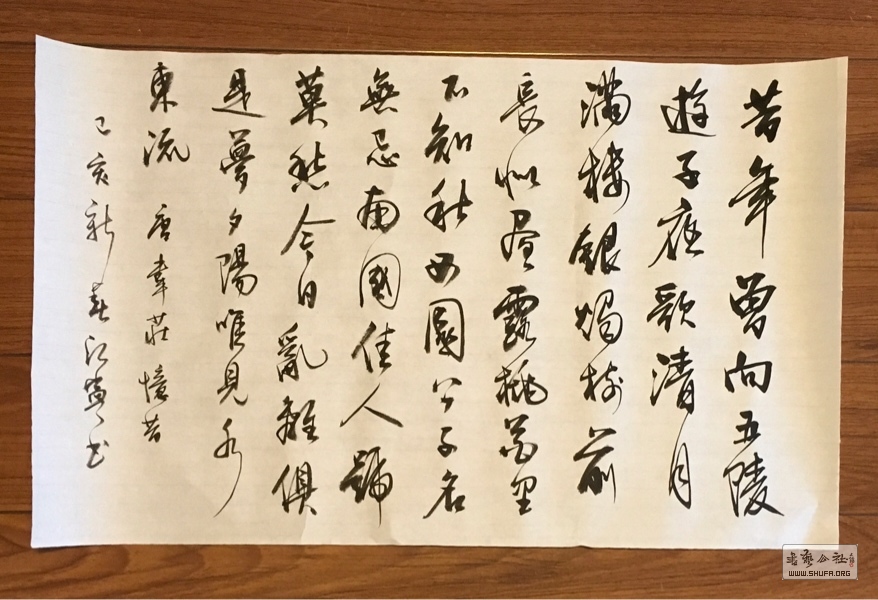 昔年曾向五陵
遊子夜歌清月
滿樓銀燭樹前
長似晝露桃花里
不知秋西園公子名
無忌南國佳人號
莫愁今日亂離俱
是夢夕陽唯見水
東流 唐韋莊憶昔
己亥新春江書
書藝公社
WWW.SHUFA.ORG